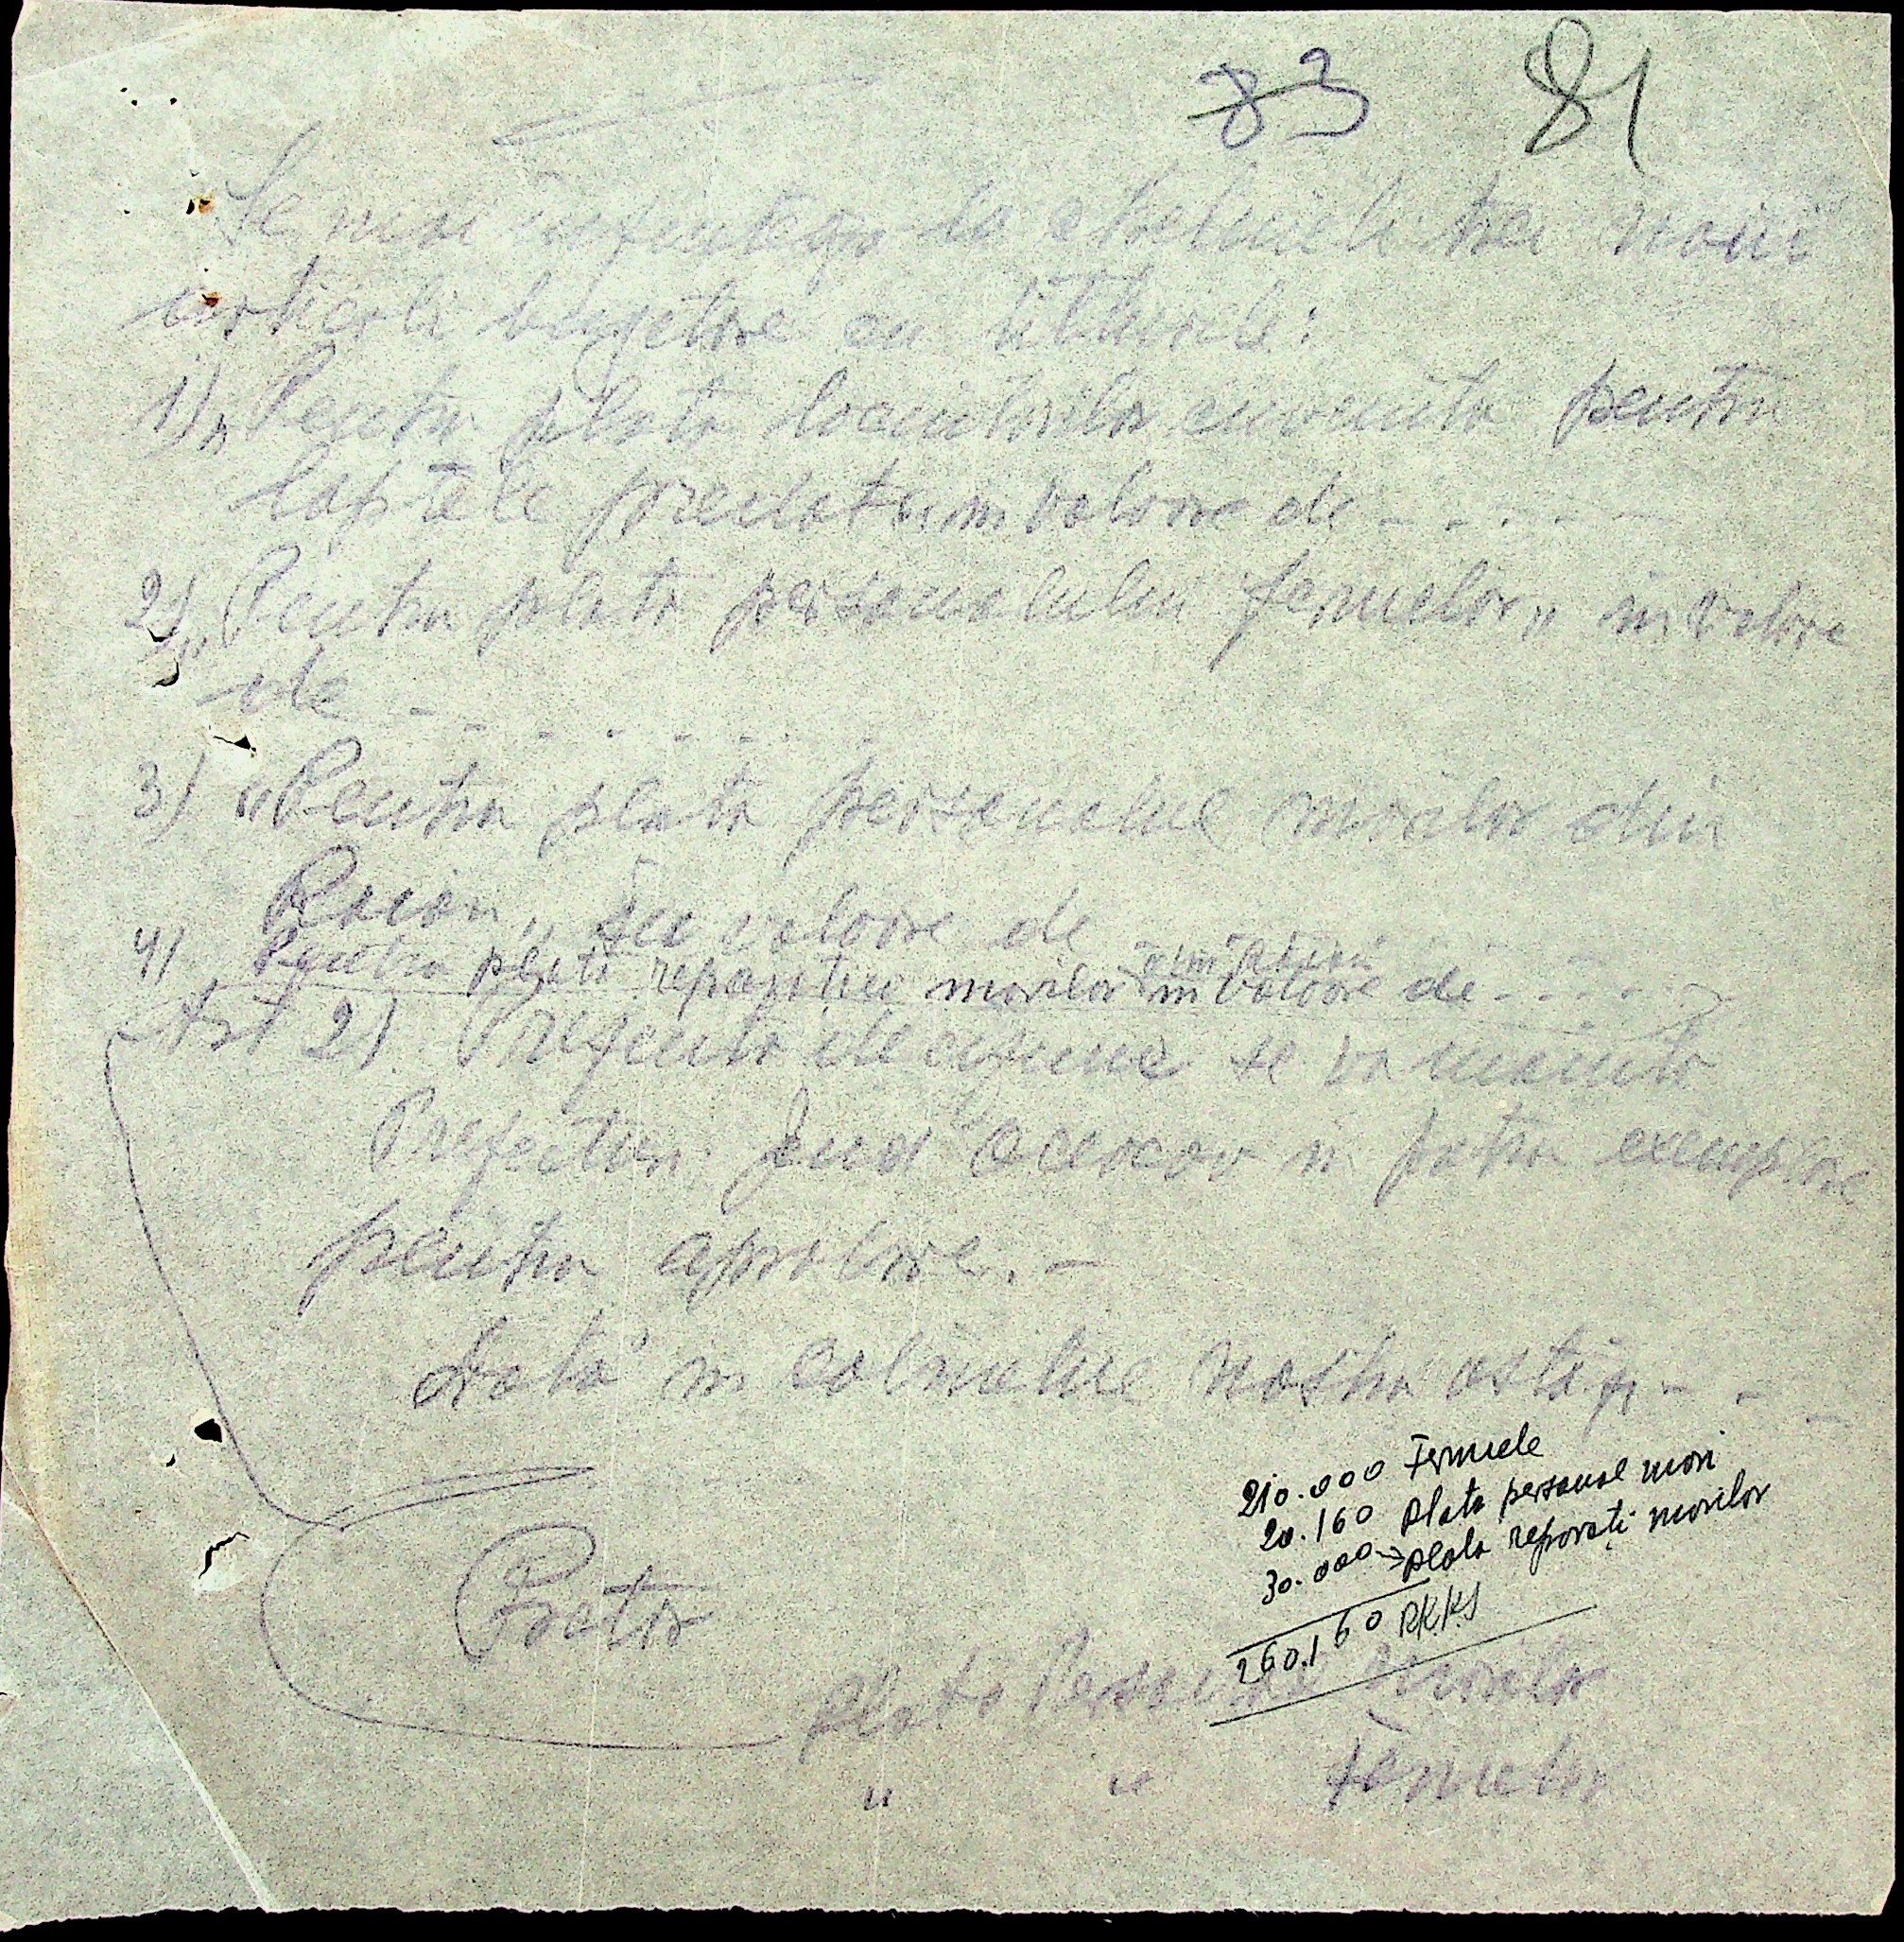 83 81
Se mai infiinteaza la cheltuieli trei noui
articole bugetare cu titlurile:
1) „Pentru plata locuitorilor cuvenita pentru
laptele predat" in valoare de - - . . - -
2) „Pentru plata personalului fermelor„ in valoare
de - - - - . - - -
3) „Pentru plata personalului morilor din
Raion„ in valoare de
4) Pentru plata reparatiei morilor din Raion in valoare de - - - -
Art 2) Prezenta deciziune se va inainta
Prefecturi Jud Oceacov in patru exemplare
pentru aprobare. -
Data in cabinetul nostru astazi - - -
210.000 Fermele
20.160 plata personal mori
30.000 -> plata reparati morilor
260.160 RKKS
Pretor
Plata Personal morilor
" " Fermelor